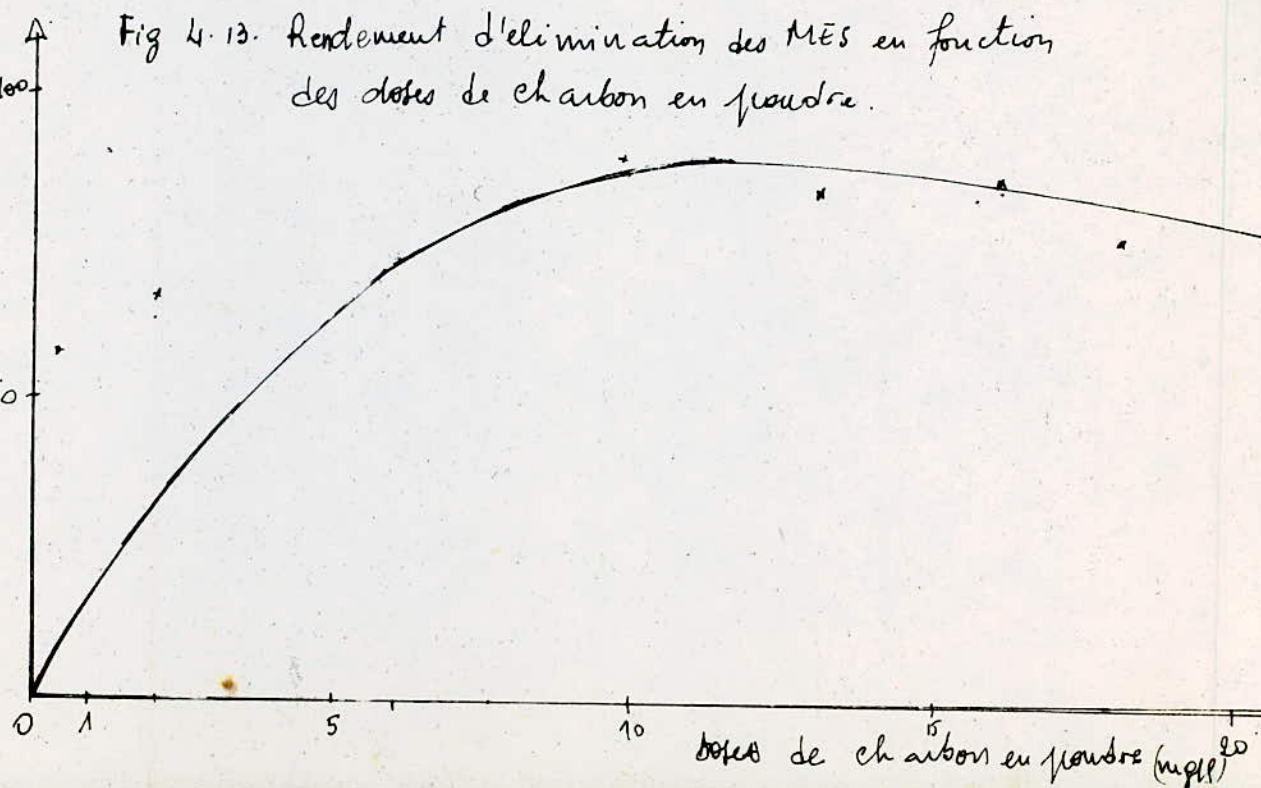 Fig 4.13. Rendement d'elimination des MES en fonction
des doses de charbon en poudre.
100
50
0 1 5 10 15 20
doses de charbon en poudre (mg/l)